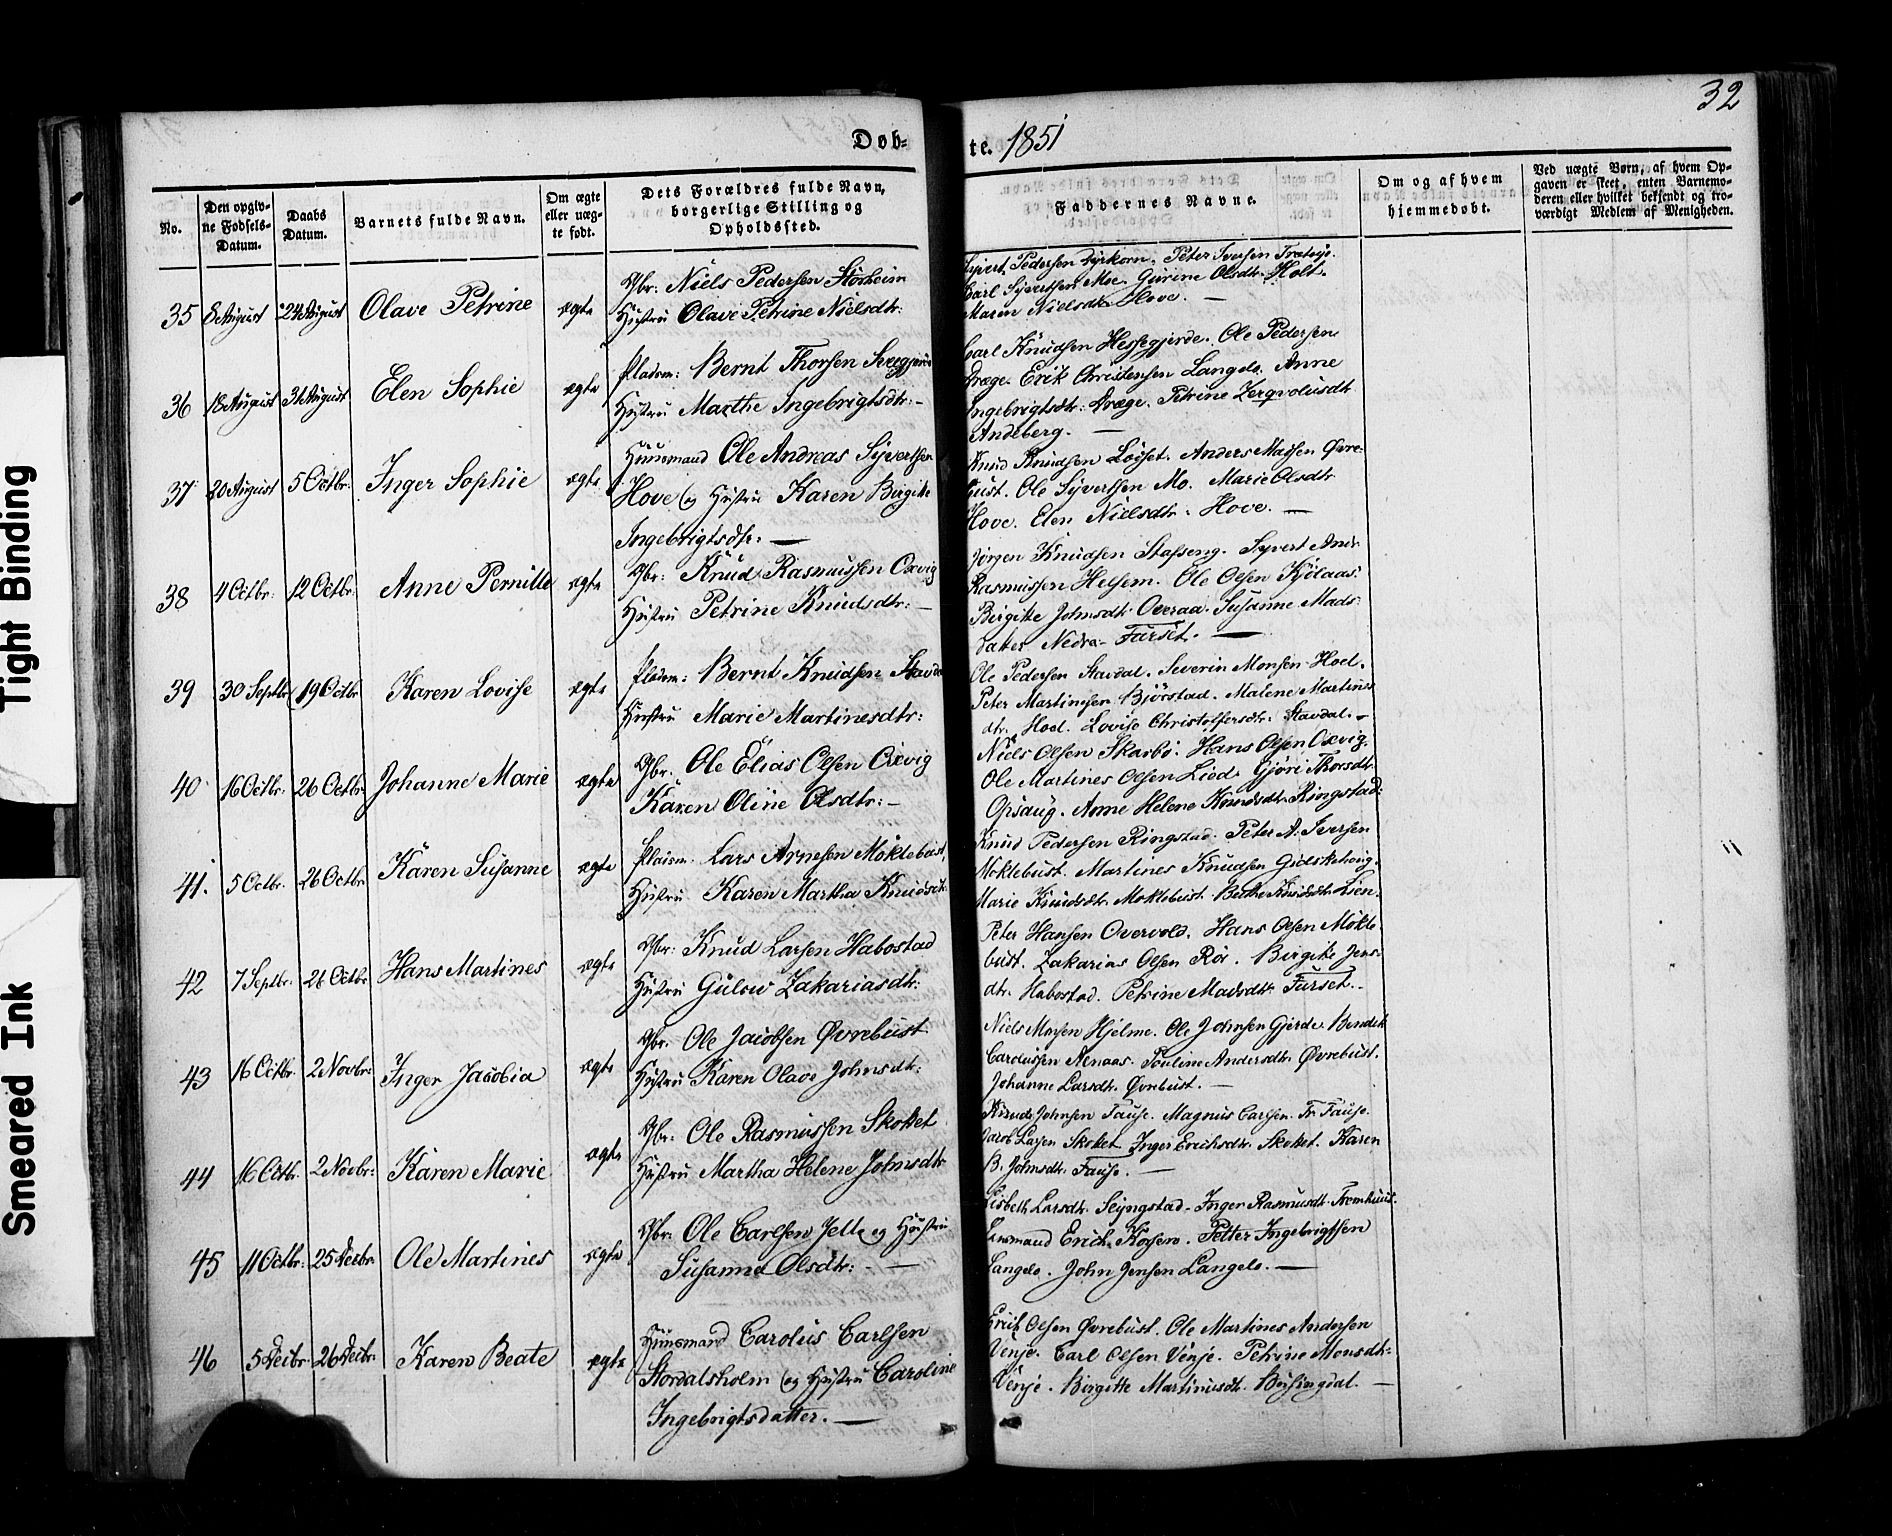 32
Døb-
te. 1851
No.
Den opgiv-
ne Fødsels-
Datum.
Daabs
Datum.
Barnets fulde Navn.
Om ægte
eller uæg-
te født.
Dets Forældres fulde Navn,
borgerlige Stilling og
Opholdssted.
Faddernes Navne.
Om og af hvem
hjemmedøbt.
Ved uægte Børn, af hvem Op-
gaven er skeet, enten Barnemo-
deren eller hvilket bekjendt og tro-
værdigt Medlem af Menigheden.
35 8 August 24 August Olave Petrine ægte
Gbr: Niels Pedersen
Hustru Olave Petrine Nielsdtr:
Syvert Pedersen Dyrkorn. Peter Iversen
Carl Syvertsen Moe. Gurine Olsdtr. Holt.
Maren Nielsdtr Hove. —
36 18 August 31 August Elen Sophie ægte
Pladsm: Bernt Thorsen
Hustru Marthe Ingebrigtsdtr: –
Carl Knudsen Hessegjerde. Ole Pedersen
Dræge. Erik Christensen Langelo. Anne
Ingebrigtsdtr: Dræge. Petrine
Andeberg. —
37 20 August 5 Octbr. Inger Sophie ægte
Huusmand Ole Andreas Syvertsen
Hove og Hustru Karen Birgitte
Ingebrigtsdtr: —
Knud Knudsen Løset. Anders Madsen Øvre-
bust. Ole Syvertsen Mo. Marie Olsdtr
Hove. Elen Nielsdtr. Hove. —
38 4 Octbr: 12 Octbr: Anne Pernille ægte
Gbr: Knud Rasmussen Oxvig
Hustru Petrine Knudsdtr: —
Jørgen Knudsen Stafseng. Syvert Andr.
Rasmussen Helsem. Ole Olsen Kjølaas.
Birgitte Johnsdtr. Overaa. Susanne Mads-
datter Nedre- Furset. —
39 30 Septbr 19 Octbr Karen Lovise ægte
Pladsm: Bernt Knudsen
Hustru Marie Martinesdtr:
Ole Pedersen Stavdal. Severin Monsen Hoel.
Peter Martinesen Bjørstad. Malene Martines
dtr. Hoel. Lovise Christoffersdtr: Stavdal. –
40 16 Octbr: 26 Octbr Johanne Marie ægte
Gbr: Ole Elias Olsen Oxvig
Karen Oline Olsdtr: –
Niels Olsen Skarbø. Hans Olsen Oxvig.
Ole Martines Olsen Lied. Gjøri Thorsdtr
Opsaug. Anne Helene Knudsdtr. Ringstad.
41. 5 Octbr. 26 Octbr Karen Susanne ægte
Pladsm. Lars Arnesen Moklebust,
Hustru Karen Martha Knudsdtr
Knud Pedersen Ringstad. Peter A. Iversen
Moklebust. Martines Knudsen Gidskehoug.
Marie Knudsdtr. Moklebust. Berthe Knudsdtr. Lien.
42 7 Septbr: 26 Octbr Hans Martines ægte
Gbr: Knud Larsen Habostad
Hustru Zakariasdtr:
Peter Hansen Overvold. Hans Olsen Mokle
bust. Zakarias Olsen Røe. Birgitte Jens-
dtr. Habostad. Petrine Madsdtr. Furset. –
43 16 Octbr. 2 Novbr: Inger Jacobia ægte
Gbr. Ole Jacobsen Øvrebust
Hustru Karen Olave Johnsdtr:
Niels Monsen Hjelme. Ole Johnsen Gjerde. Bendik
Carolussen Nenaas. Pouline Andersdtr. Øvrebust.
Johanne Larsdtr. Øvrebust. —
44 16 Octbr. 2 Novbr: Karen Marie ægte
Gbr: Ole Rasmussen Skotket
Hustru Martha Helene Johnsdtr
Knud Johnsen Fause. Magnus Carlsen Fause.
Jacob Larsen Skotket. Inger Eriksdtr. Skotket. Karen
B. Johnsdtr. Fause. —
45 11 Octbr: 25 Decbr. Ole Martines ægte
Gbr: Ole Carlsen Jelle og Hustru
Susanne Olsdtr: - —
Lisbeth Larsdtr. Inger Rasmusdtr.
Erich Korsen. Petter Ingebrigtsen
Langelo. John Jensen Langelo. —
46 5 Decbr. 26 Decbr. Karen Beate ægte
Huusmand Carolus Carlsen
Stordalsholm og Hustru Caroline
Ingebrigtsdatter. —
Erik Olsen Øvrebust. Ole Martines Andersen
Venje. Carl Olsen Venje. Petrine Monsdtr-
Venje. Birgitte Martinusdtr. Busingdal. —
Tight Binding
Smeared Ink